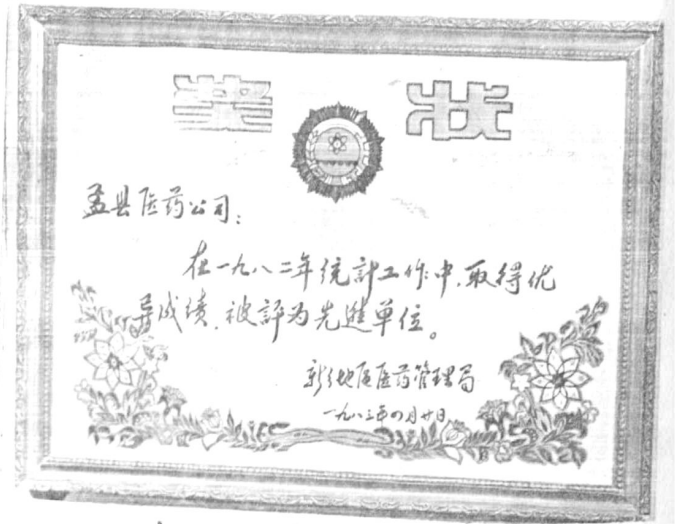 奖状
孟县医药公司:
在一九八二年统計工作中,取得优
异成绩,被評为先進单位。
新乡地区医药管理局
一九八三年四月廿日